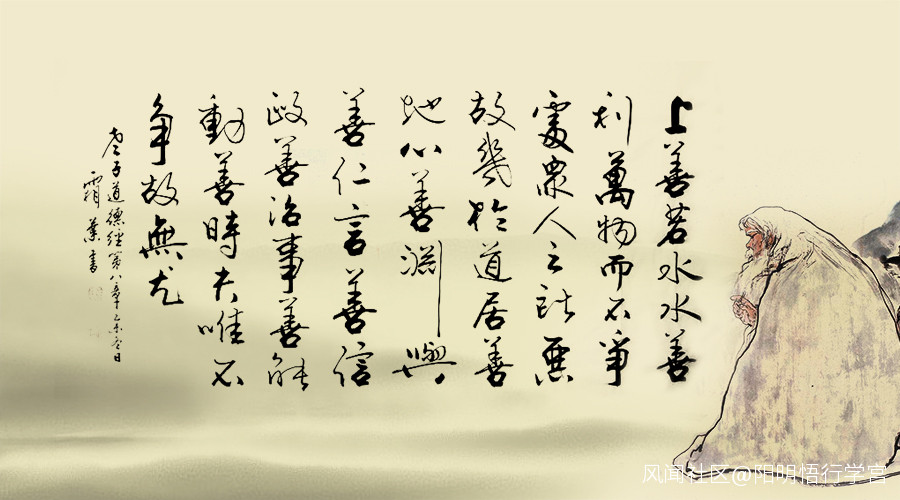 上善若水水善
利萬物而不爭
處衆人之所惡
故幾於道居善
地心善淵與
善仁言善信
政善治事善能
動善時夫唯不
争故無尤
老子道德經第八章乙未冬日
霜葉書
风闻社区@阳明悟行学宫